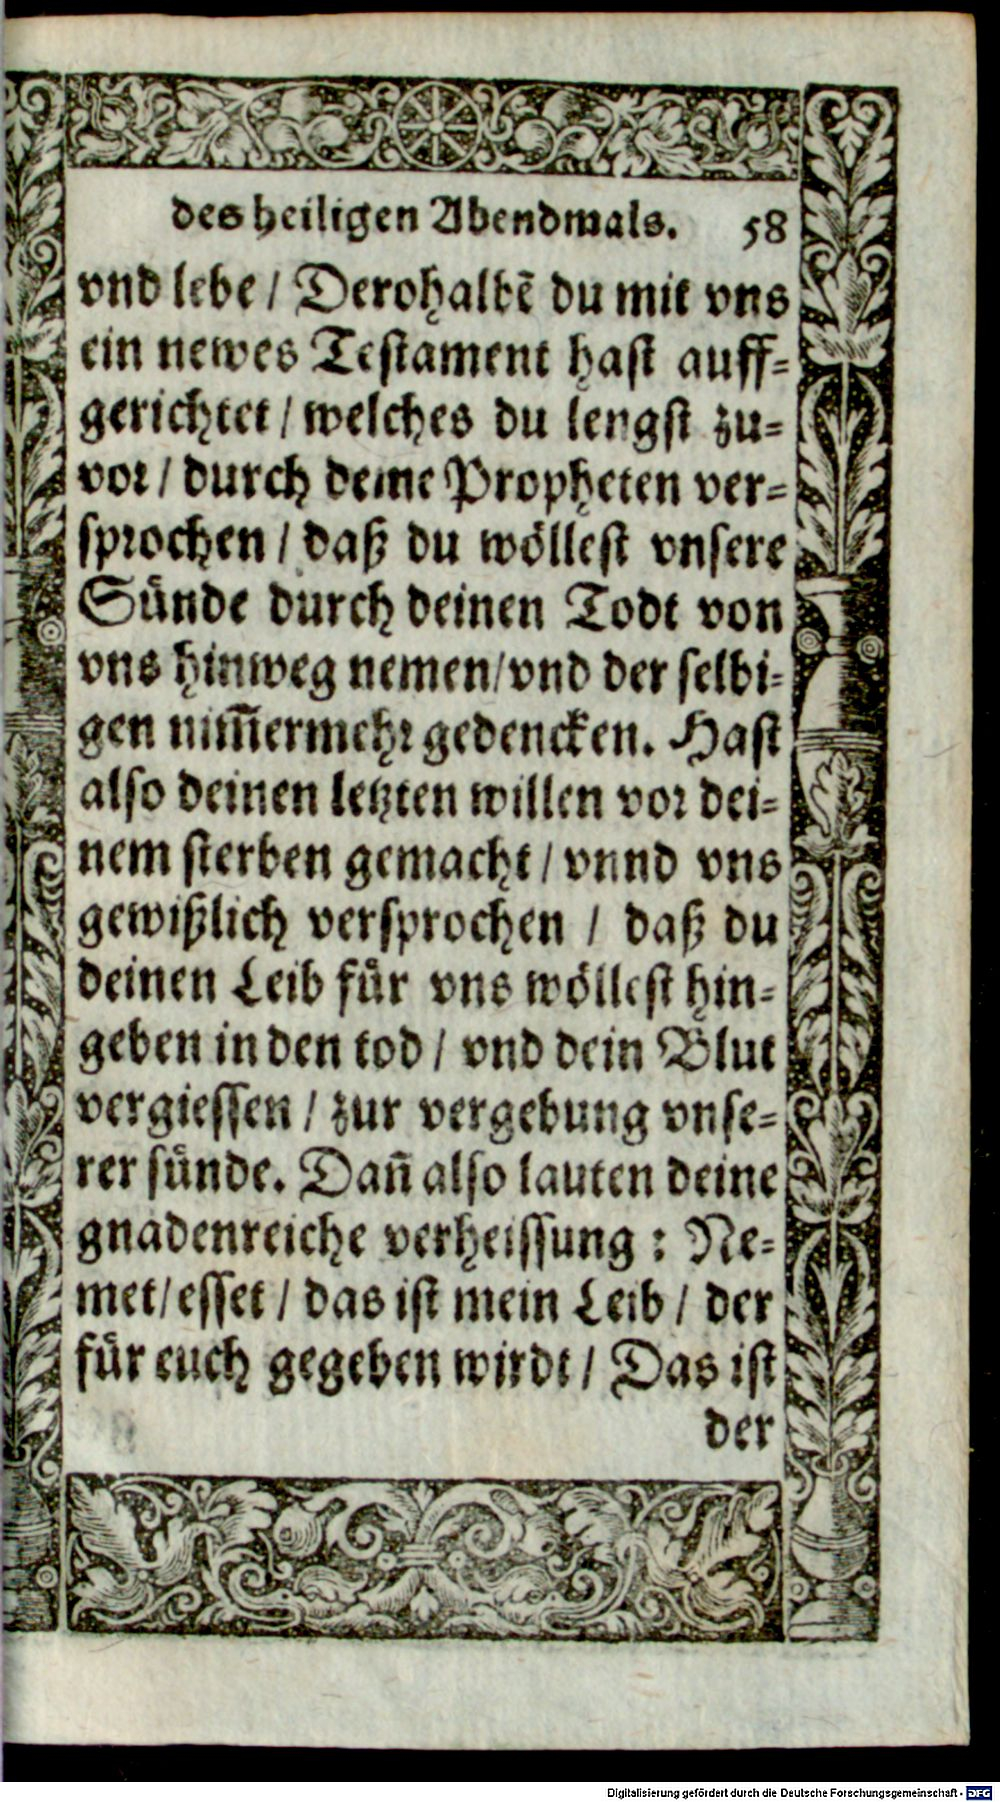 des heiligen Abendmals. 58
vnd lebe / Derohalbẽ du mit vns
ein newes Testament hast auff-
gerichtet / welches du lengst zu-
vor / durch deine Propheten ver-
sprochen / daß du wöllest vnsere
Sünde durch deinen Todt von
vns hinweg nemen/vnd der selbi-
gen nim̄ermehr gedencken. Hast
also deinen letzten willen vor dei-
nem sterben gemacht / vnnd vns
gewißlich versprochen / daß du
deinen Leib für vns wöllest hin-
geben in den tod / vnd dein Blut
vergiessen / zur vergebung vnse-
rer sünde. Dañ also lauten deine
gnadenreiche verheissung : Ne-
met/esset / das ist mein Leib / der
für euch gegeben wirdt / Das ist
der
Digitalisierung gefördert durch die Deutsche Forschungsgemeinschaft - DFG